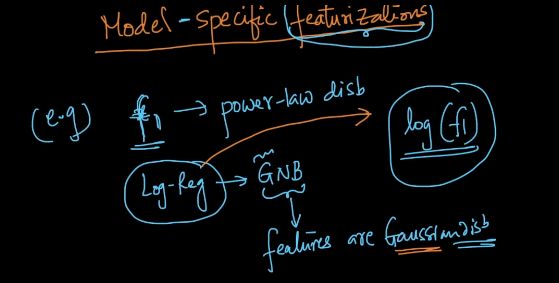 Model-specific featurizations
(e.g) f1 → power-law disb
log(f1)
Log-Reg → GNB
features are Gaussian disb